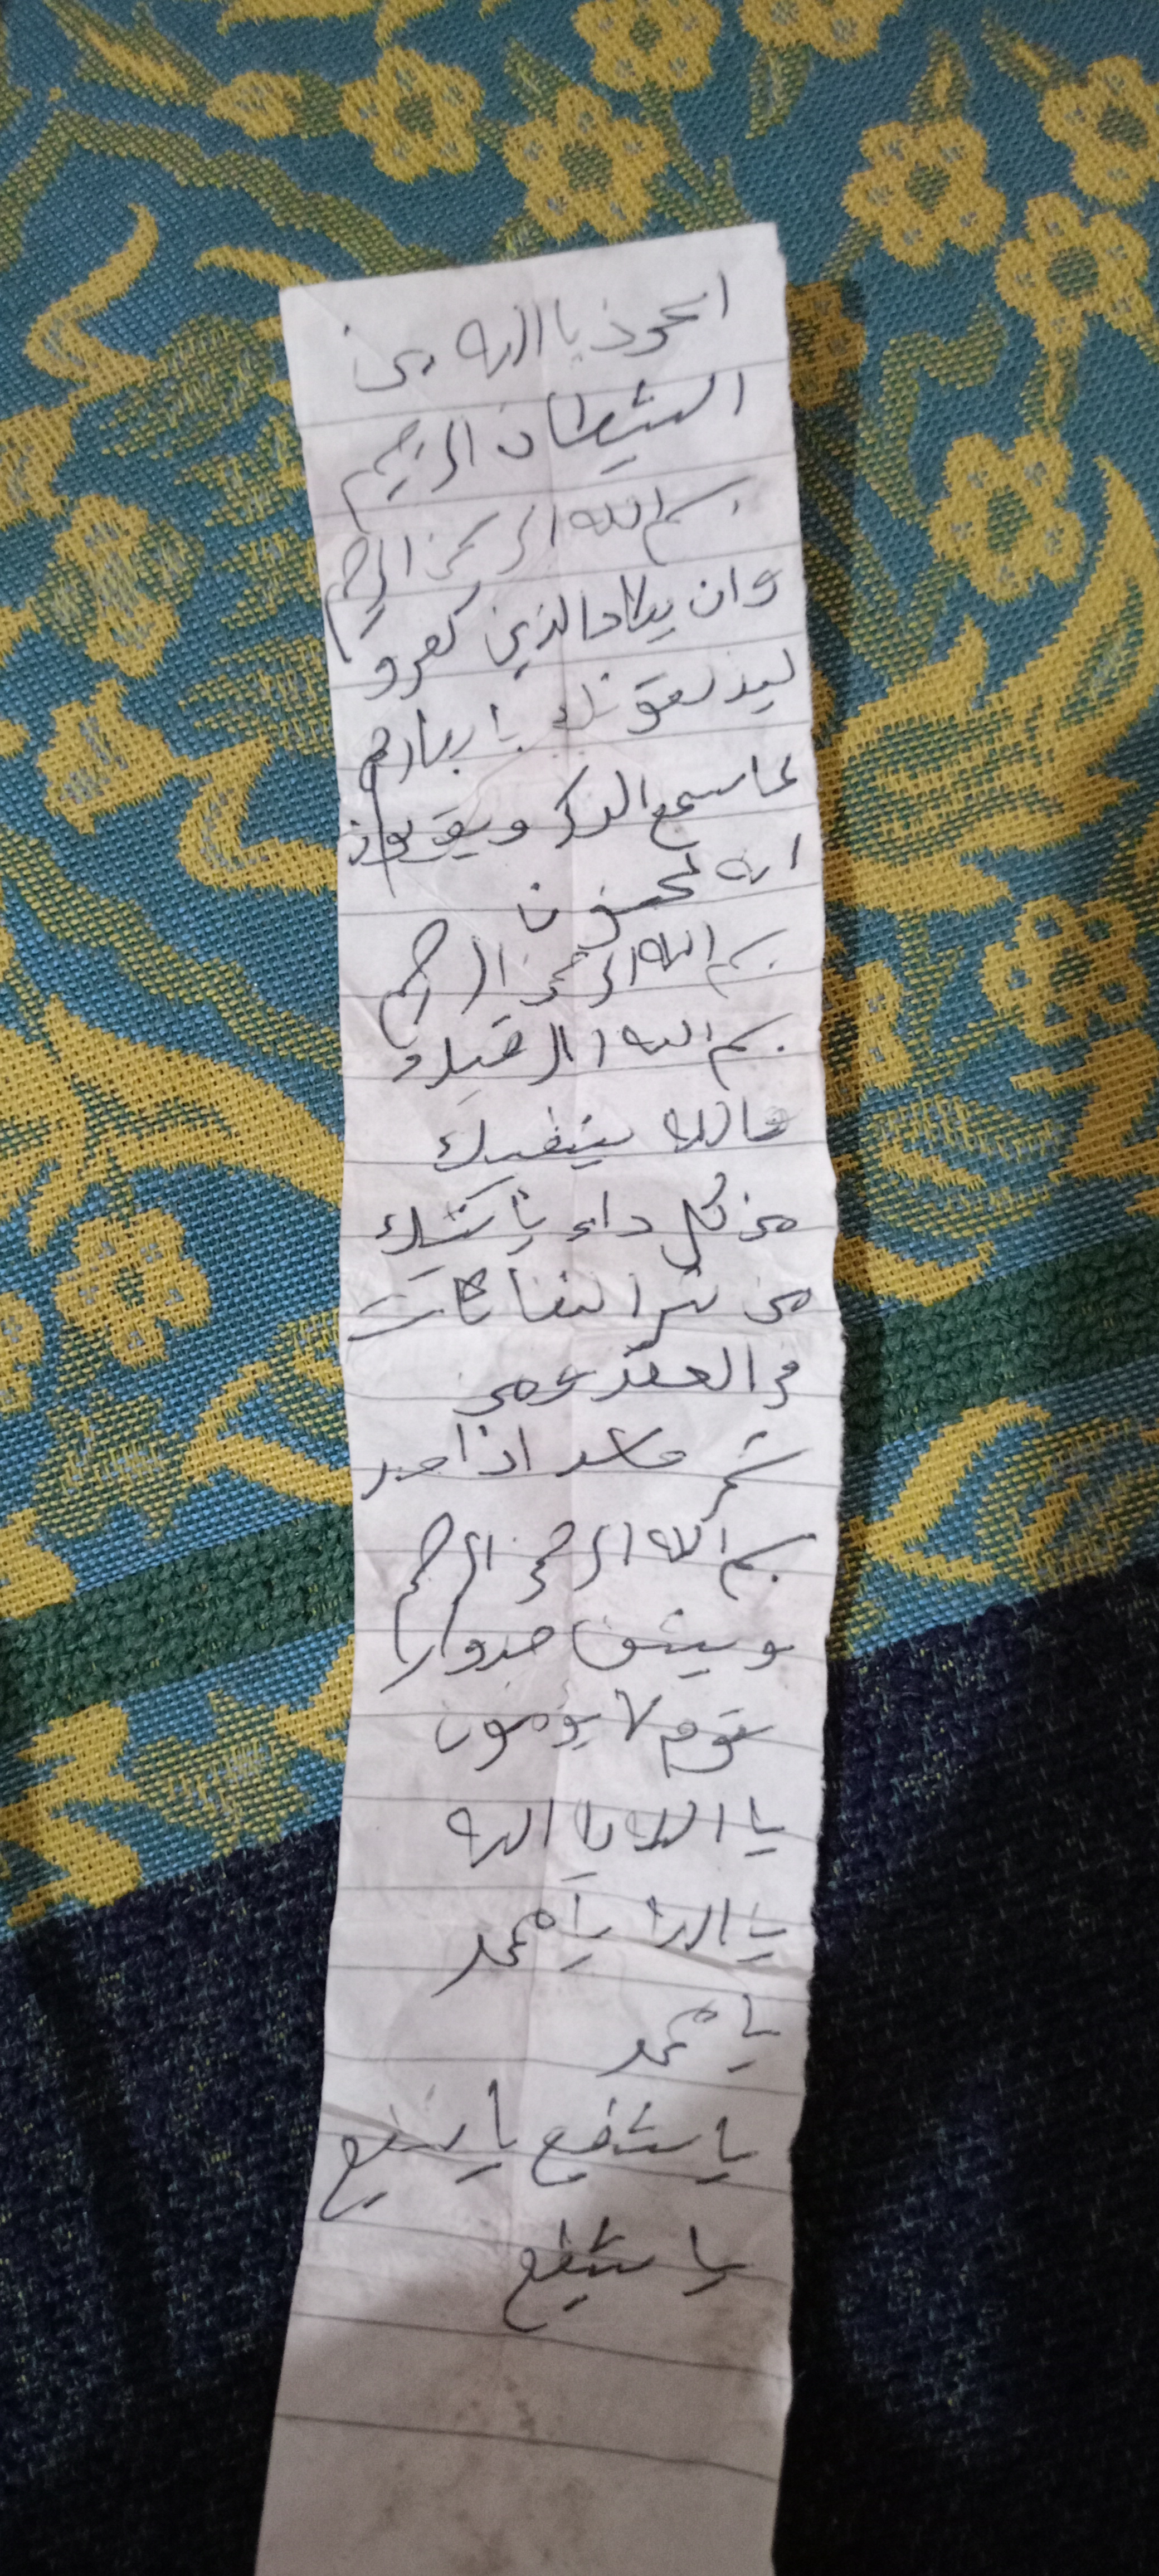 اعوذ بالله من
الشيطان الرجيم
بسم الله الرحمن الرحيم
وان يكاد الذين كفرو
ليذلقونك بابصارهم
لما سمع الذكر ويقولون
انه لمجنون
بسم الله الرحمن الرحيم
بسم الله ارقيك و
الله يشفيك
من كل داء ياتيك
من شر النفاثات
في العقد ومن
شر حاسد اذا حسد
بسم الله الرحمن الرحيم
ويشف صدور
قوم لا يؤمنون
يا الله يا الله
يا الله يا محمد
يا محمد
يا شفيع يا شفيع
يا شفيع